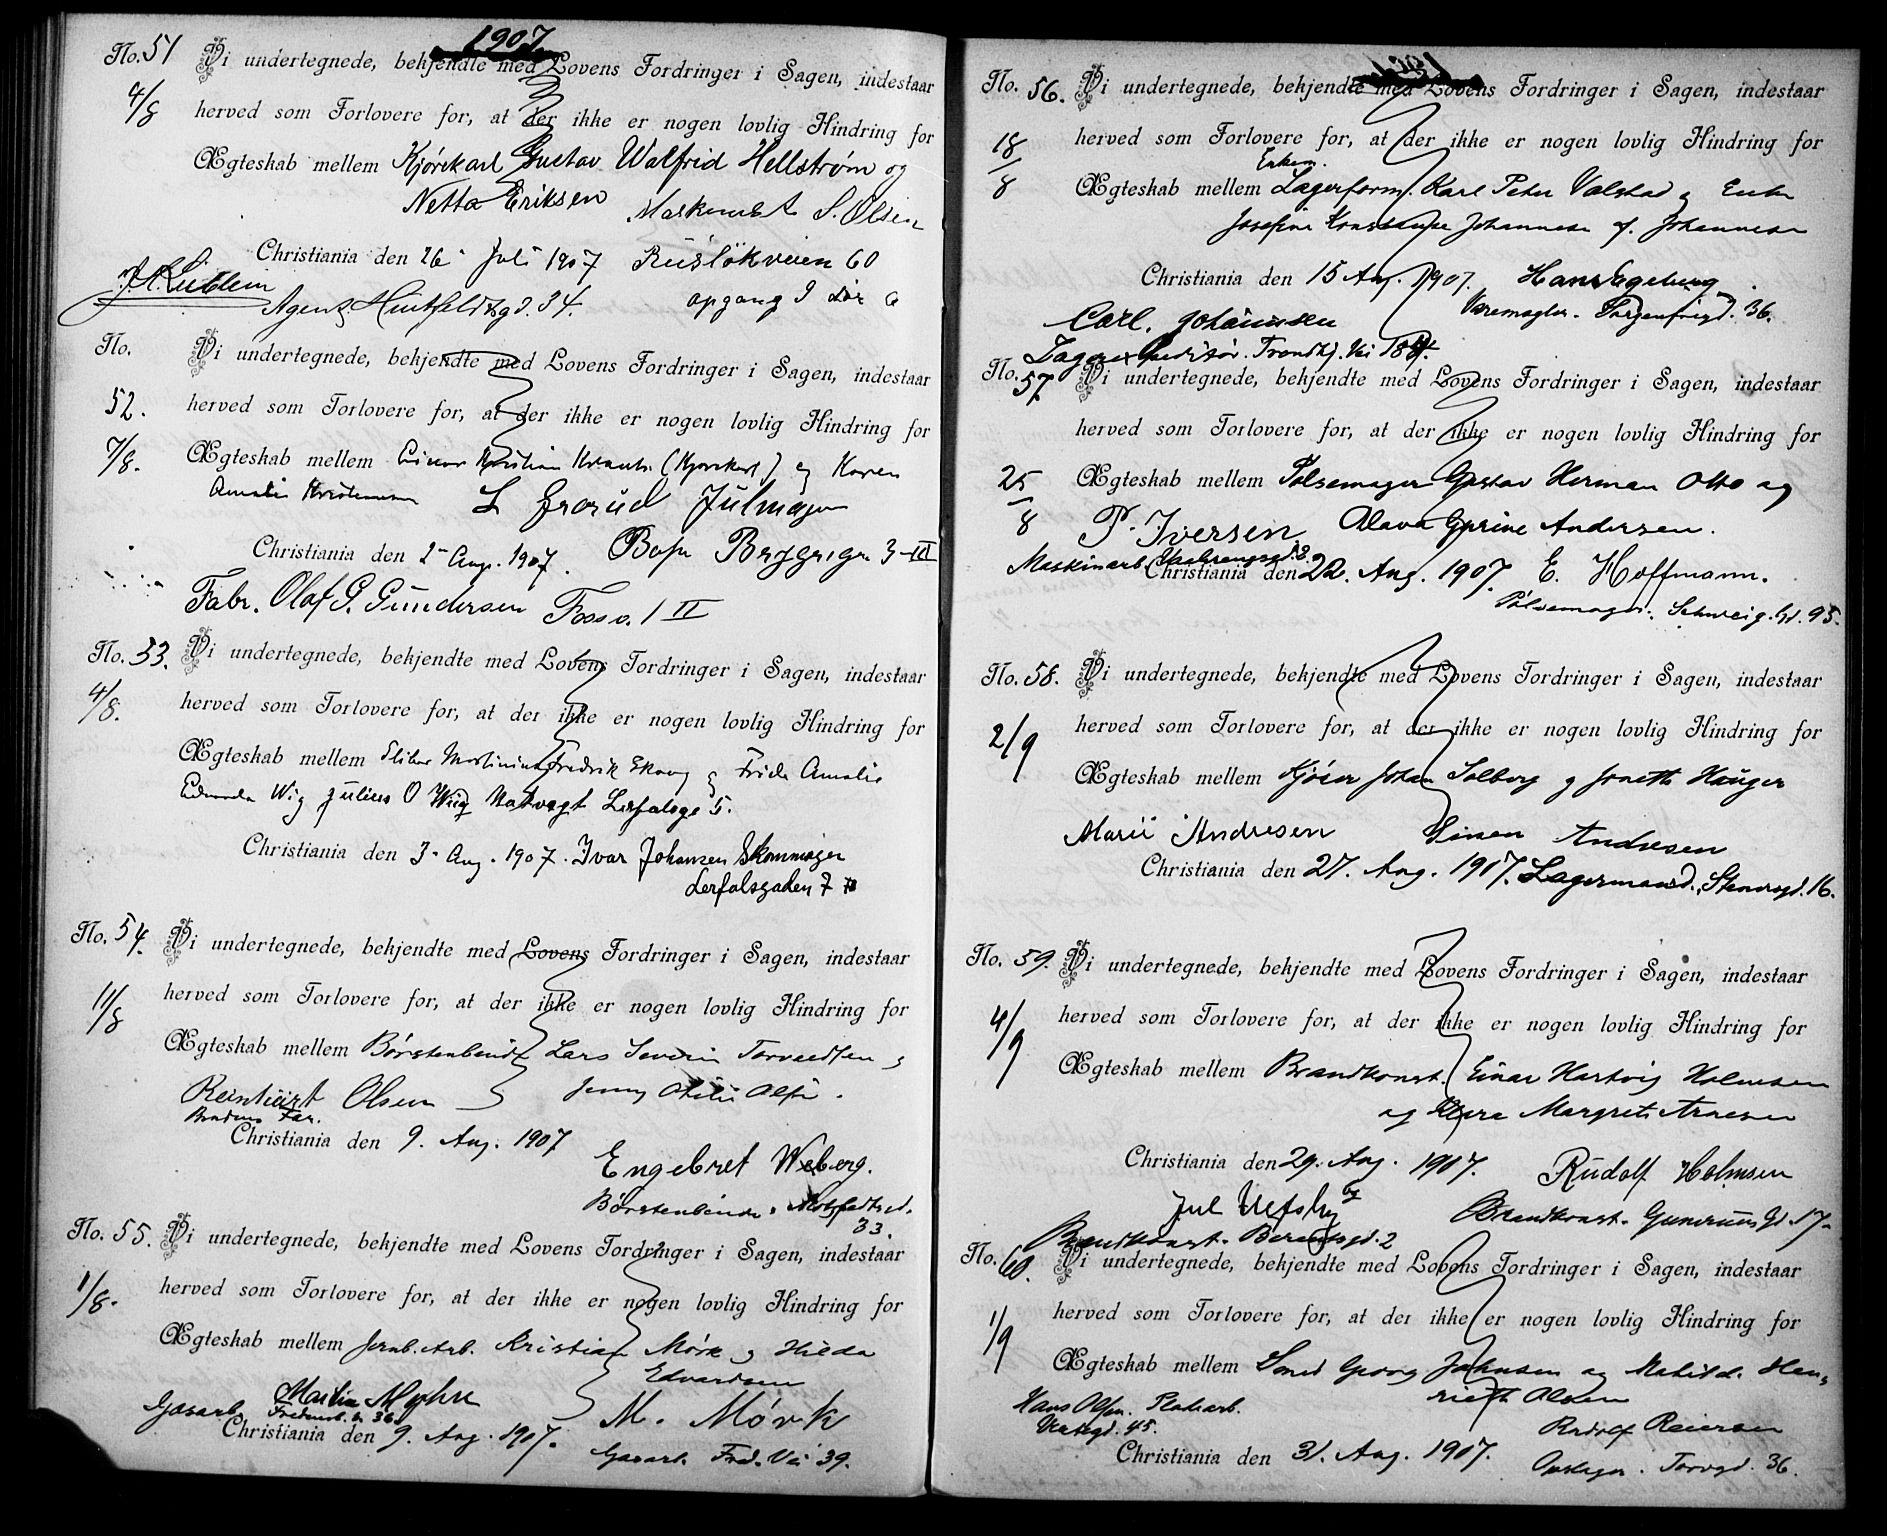 1907
No. 51 Vi undertegnede, bekjendte med Lovens Fordringer i Sagen, indestaar
4/8 herved som Forlovere for, at der ikke er nogen lovlig Hindring for
Ægteskab mellem Kjørekarl Gustav Walfrid Hellstrøm og
Netta Eriksen S. Olsen
Christiania den 26 Juli 1907 Ruslökveien 60
Agent Huitfeldtsgd. 34. opgang
No. Vi undertegnede, bekjendte med Lovens Fordringer i Sagen, indestaar
52. herved som Forlovere for, at der ikke er nogen lovlig Hindring for
7/8. Ægteskab mellem Einar Kristian (Kjørekarl) og Karen
Amalie Kristensen
Christiania den 2 Aug. 1907. 3-III
Fabr. Olaf G. Gundersen Fossv. 1 II
No. 53. Vi undertegnede, bekjendte med Lovens Fordringer i Sagen, indestaar
4/8. herved som Forlovere for, at der ikke er nogen lovlig Hindring for
Ægteskab mellem Sliber Martinius Fredrik Skaug og Frida Amalie
Edvarda Wig Julius O Wiig Natvagt 5.
Christiania den 3 Aug. 1907. Ivar Johansen Skommager
Lerfalsgaden 7
No. 54. Vi undertegnede, bekjendte med Lovens Fordringer i Sagen, indestaar
11/8 herved som Forlovere for, at der ikke er nogen lovlig Hindring for
Ægteskab mellem Børstenbinder Lars Severin Torvedsen og
Reinhart Olsen Jenny Otilie Olsen.
Christiania den 9. Aug. 1907
Engebret Weberg.
Børstenbinder, Motzfeldtsgd.
33.
No. 55. Vi undertegnede, bekjendte med Lovens Fordringer i Sagen, indestaar
1/8. herved som Forlovere for, at der ikke er nogen lovlig Hindring for
Ægteskab mellem Jernb.Arb. Kristian Mørk og Hilda
Edvardsen
Gasarb. Martin Myhre M. Mørk
Christiania den 9. Aug. 1907. Gasarb. Fred. Vei 39.
No. 56. Vi undertegnede, bekjendte med Lovens Fordringer i Sagen, indestaar
18/8 herved som Forlovere for, at der ikke er nogen lovlig Hindring for
Enkem.
Ægteskab mellem Lagerform. Karl Peter Valstad og Enke
Josefine Konstanse Johannesen f. Johannesen
Christiania den 15 Aug. 1907. Hans Egeberg
Varemægler. Sorgenfrigd. 36.
Carl. Johannsen
Lagerexpeditör. Trondhj. Vei
No. 57. Vi undertegnede, bekjendte med Lovens Fordringer i Sagen, indestaar
herved som Forlovere for, at der ikke er nogen lovlig Hindring for
25/8 Ægteskab mellem Pølsemager Gustav Herman Otto og
P. Iversen Olava Gurine Andersen.
Maskinarb.
Christiania den 22. Aug. 1907. E. Hoffmann.
Pølsemager. Schweig. Gd. 95.
No. 58. Vi undertegnede, bekjendte med Lovens Fordringer i Sagen, indestaar
2/9 herved som Forlovere for, at der ikke er nogen lovlig Hindring for
Ægteskab mellem Kjører Johan Solberg og Jonette Hauger
Marie Andresen Simen Andresen
Christiania den 27. Aug. 1907. Lagermand. Stenersgd. 16.
No. 59. Vi undertegnede, bekjendte med Lovens Fordringer i Sagen, indestaar
4/9 herved som Forlovere for, at der ikke er nogen lovlig Hindring for
Ægteskab mellem Brandkonst. Einar Hartvig Holmsen
og Margrete Arnesen
Christiania den 29. Aug. 1907. Rudolf Holmsen
Brandkonst. Berentsgd. 2 Brandkonst. Gd. 17.
No. 60. Vi undertegnede, bekjendte med Lovens Fordringer i Sagen, indestaar
1/9 herved som Forlovere for, at der ikke er nogen lovlig Hindring for
Ægteskab mellem Smed Georg Johnsen og Matilde Hen-
riette Olsen
Hans Olsen. Pladearb.
45. Rudolf Reiersen
Christiania den 31. Aug. 1907. Opslager. Torvgd. 36.